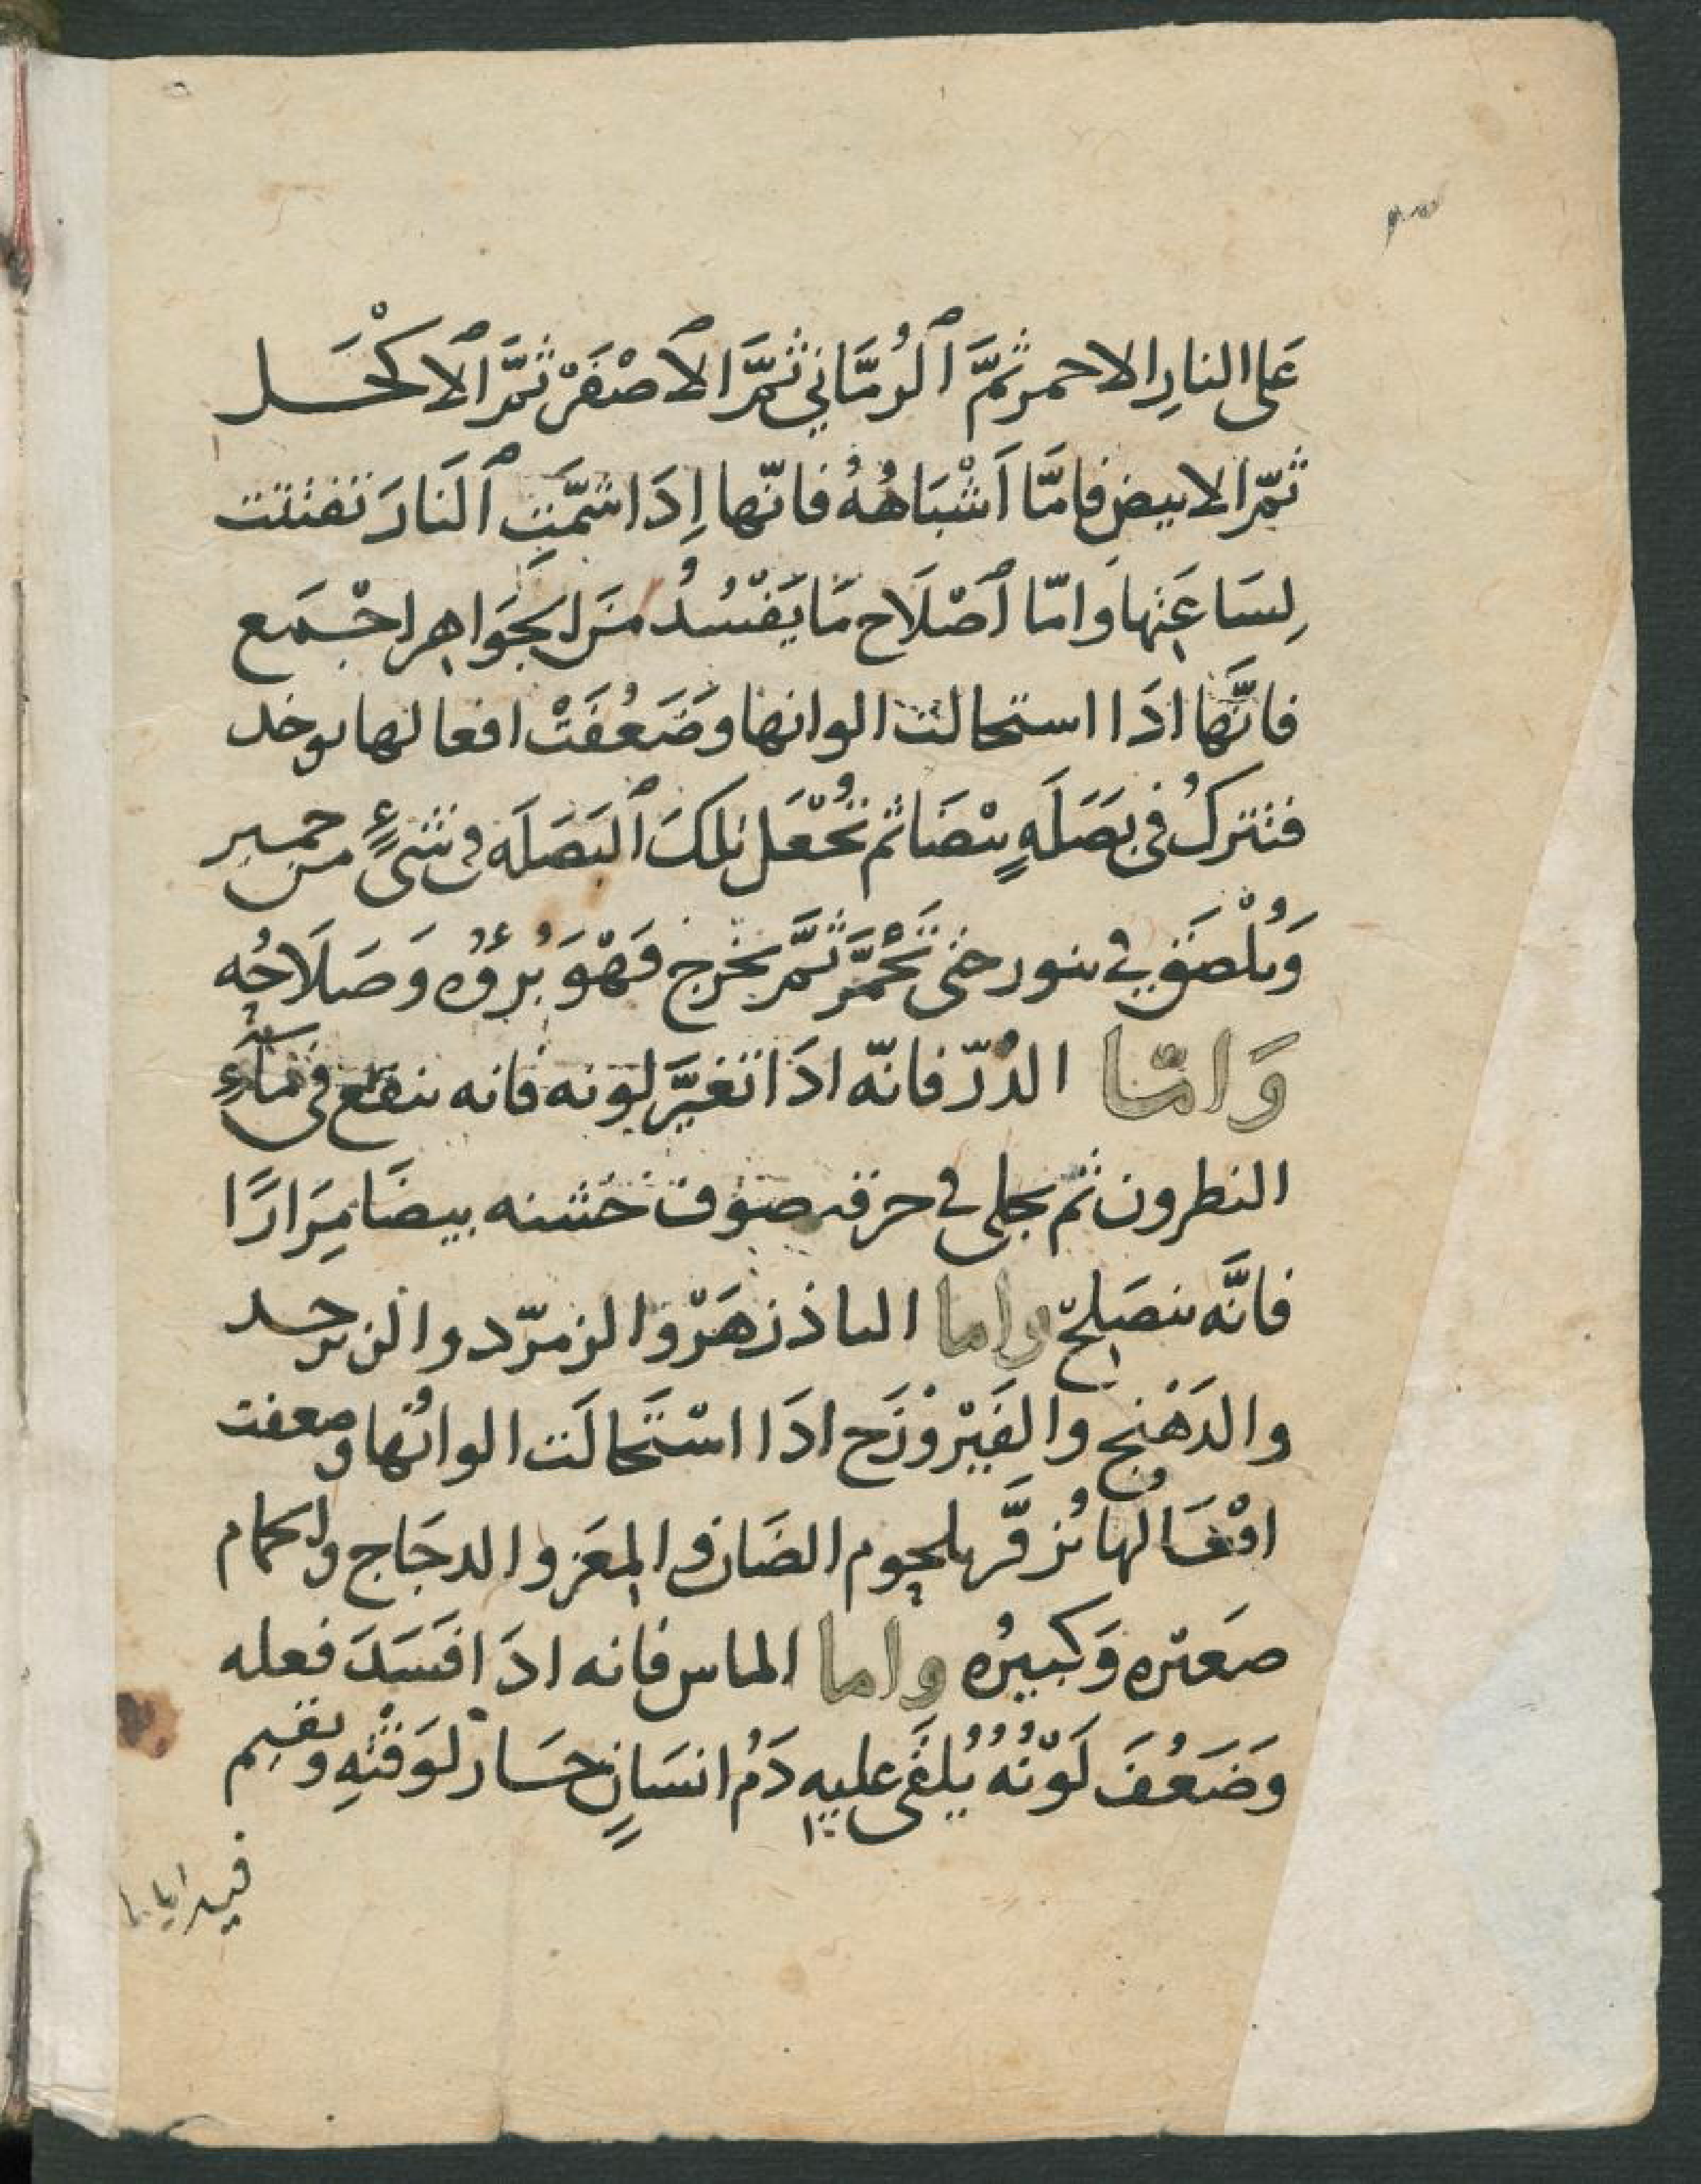 عَلى النارِ الاحمر ثمَّ ٱلرُمَّاني ثمَّ الاصْفَرْ ثمَّ الاكْحَل
ثمّ الابيض فامَّا اَشْبَاهُهُ فانّها اِذَا شمَّتِ ٱلنَارَ تفتتت
لِسَاعَتِها وامّا ٱصْلَاح مَا يَفْسُدُ مَن الجَوَاهِر اجْمَع
فانَّها اذَا استحالت الوانها وضَعُفَتْ افعالها يوخد
فتتركُ في بَصَلَهٍ بيْضَا ثم تُجْعَل تلكَ ٱلبَصَلَه في شىءٍ من خمير
وَتُلْصَق في تنور حتى تَحْمَرَّ ثمَّ تخرج فَهْوَ بُرؤُه وَصَلَاحُه
وَامّا الدُرّ فانّه اذَا تغيَّر لونه فانه ينقع في مآءِ
النطرون ثم يجلى في خرقه صوف خشنه بيضَا مِرَارًا
فانَّه ينصَلِحْ واما الباذزهَرْ والزمرّد والزبرجد
والدَهْنج والفَيْرُوْزَج اذَا اسْتَحَالَت الوانُها وضعفت
افْعَالُها تُزفَّر بلحوم الضَان والمعَز والدجَاج والحمام
صَغيْره وَكبيرُه واما الماس فانه اذَا فَسَدَ فعله
وَضَعُفَ لَوْنُهُ يُلقَى عليهِ دَمُ انسَانٍ حَار لوَقْتِهِ ويقيم
فيه اياما